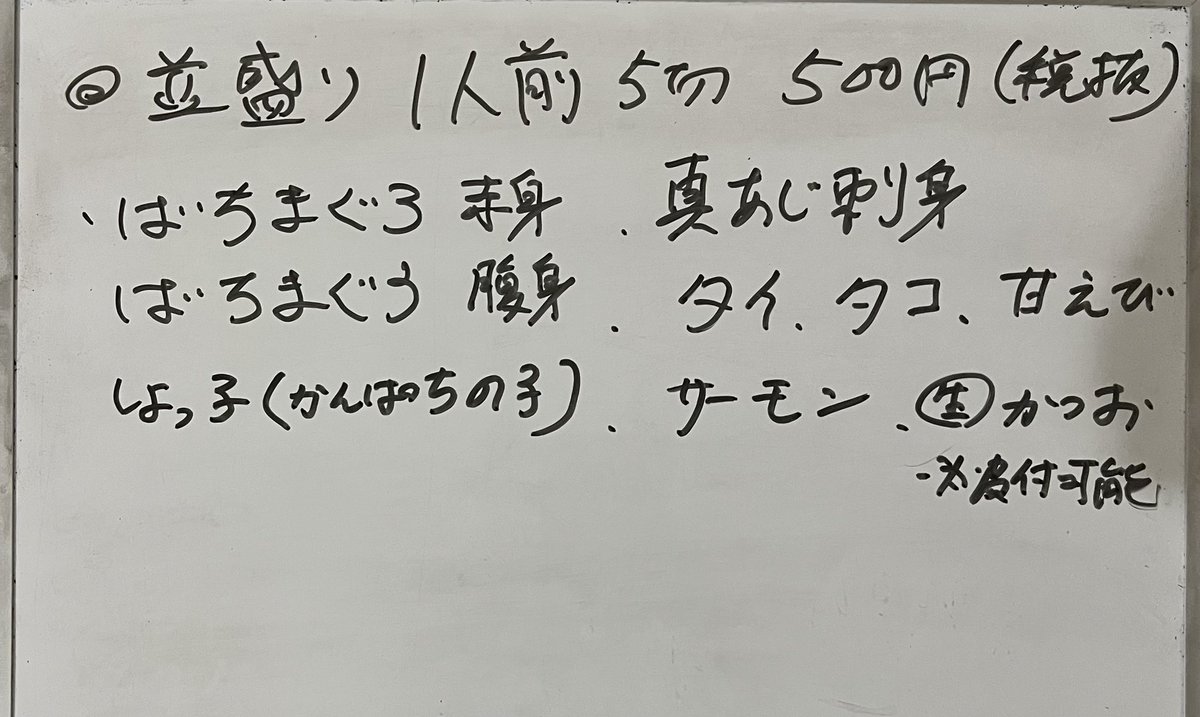 ◎並盛り 1人前 5切 500円(税抜)
、ばちまぐろ 赤身 、真あじ刺身
ばちまぐろ 腹身 、タイ、タコ、甘えび
しょっ子(かんぱちの子)、サーモン、生かつお
※皮付可能